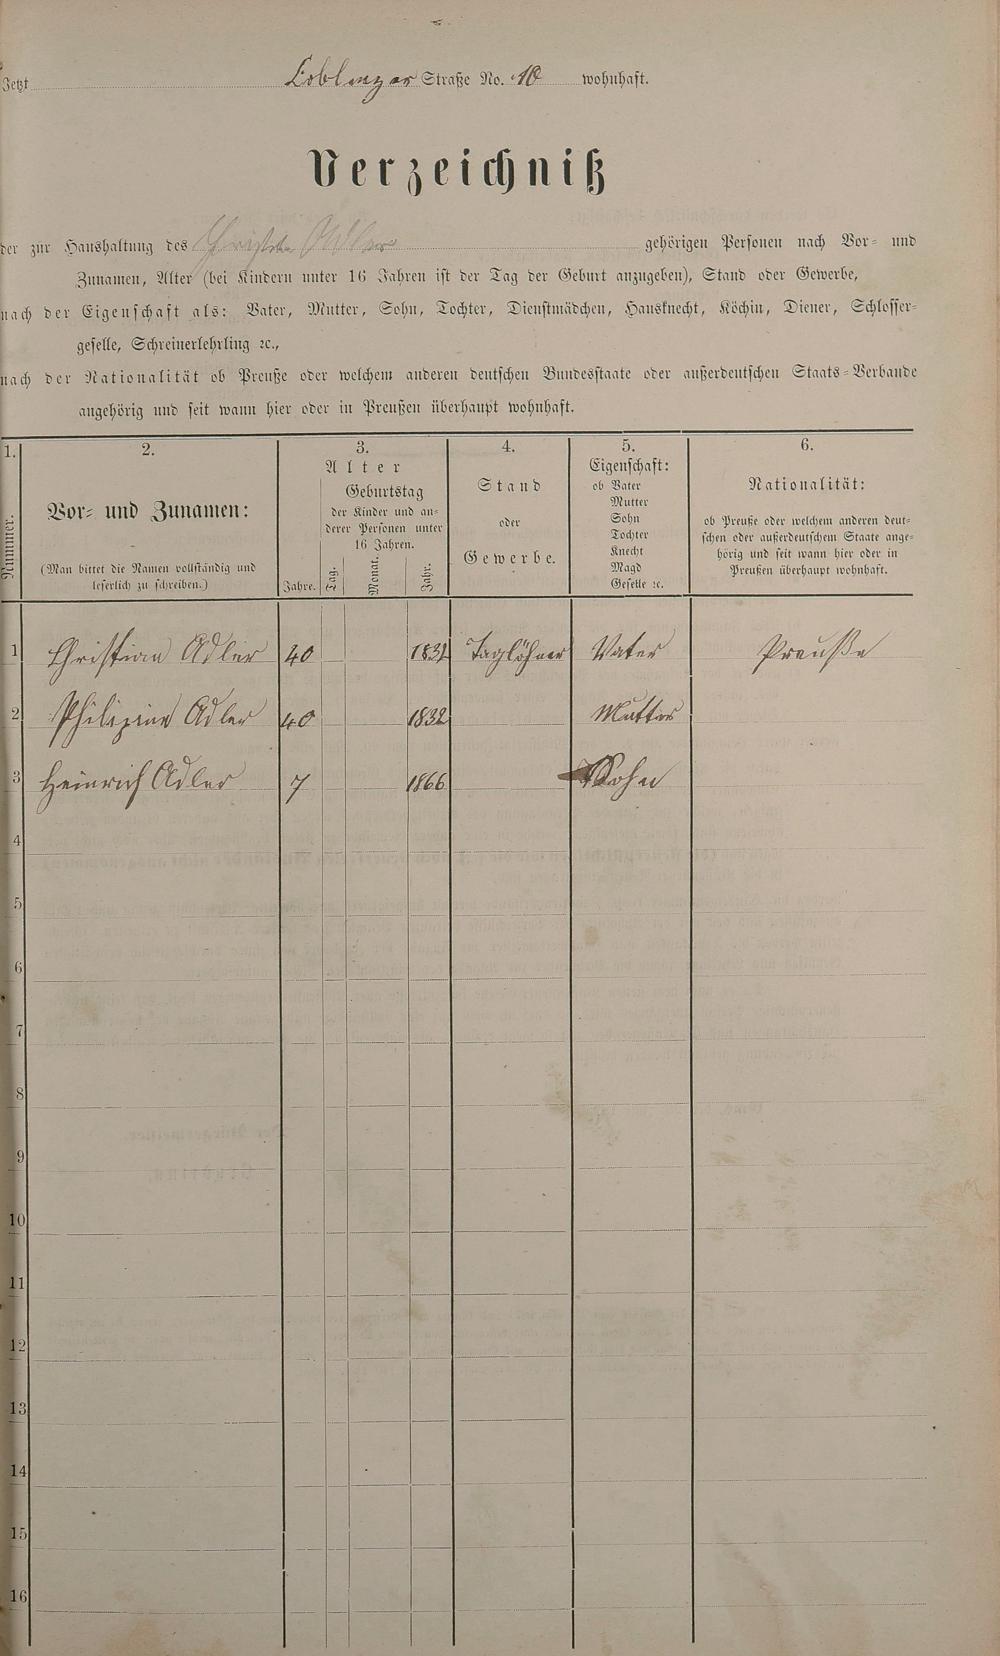 Jetzt Coblenzer Straße No. 10 wohnhaft.
Verzeichniß
der zur Haushaltung des Christian Adler gehörigen Personen nach Vor- und
Zunamen, Alter (bei Kindern unter 16 Jahren ist der Tag der Geburt anzugeben), Stand oder Gewerbe,
nach der Eigenschaft als: Vater, Mutter, Sohn, Tochter, Dienstmädchen, Hausknecht, Köchin, Diener, Schlosser-
geselle, Schreinerlehrling ꝛc.,
nach der Nationalität ob Preuße oder welchem anderen deutschen Bundesstaate oder außerdeutschen Staats-Verbande
angehörig und seit wann hier oder in Preußen überhaupt wohnhaft.
1.
Nummer.
2.
Vor- und Zunamen:
(Man bittet die Namen vollständig und
leserlich zu schreiben.)
3.
Alter
Jahre.
Geburtstag
der Kinder und an-
derer Personen unter
16 Jahren.
Tag.
Monat.
Jahr.
4.
Stand
oder
Gewerbe.
5.
Eigenschaft:
ob Vater
Mutter
Sohn
Tochter
Knecht
Magd
Geselle ꝛc.
6.
Nationalität:
ob Preuße oder welchem anderen deut-
schen oder außerdeutschem Staate ange-
hörig und seit wann hier oder in
Preußen überhaupt wohnhaft.
1 Christian Adler 40 1832 Taglöhner Vater Preuße
2 Philipine Adler 40 1832 Mutter
3 Heinrich Adler 7 1866 Sohn
4
5
6
7
8
9
10
11
12
13
14
15
16